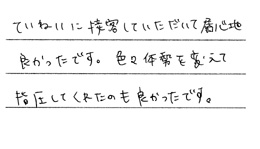 ていねいに接客していただいて居心地
良かったです。色々体勢を変えて
指圧してくれたのも良かったです。